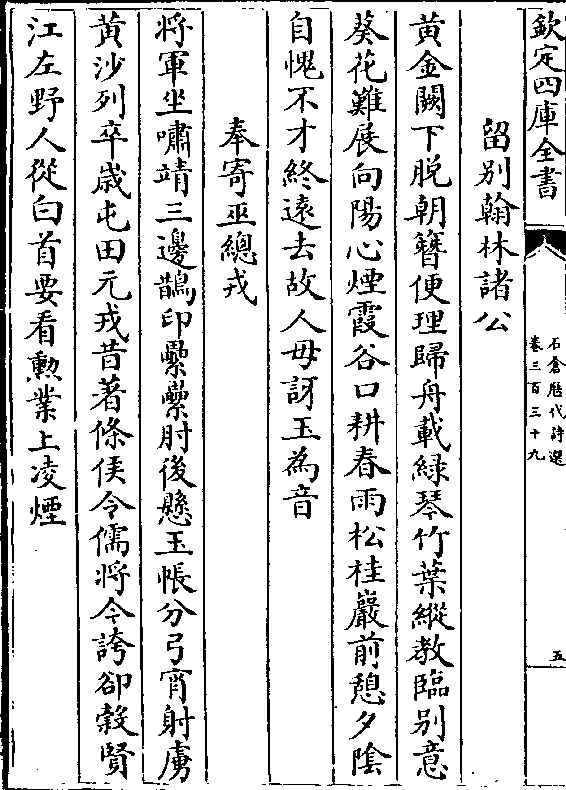 欽定四庫全書
石倉歷代詩選
卷三百三十九
五
留別翰林諸公
黃金闕下脱朝簪便理歸舟載緑琴竹葉縱教臨别意
葵花難展向陽心煙霞谷口耕春雨松桂巖前憩夕陰
自愧不才終遠去故人毋訝玉為音
奉寄巫總戎
將軍坐嘯靖三邊鵲印纍纍肘後懸玉帳分弓宵射虜
黃沙列卒歲屯田元戎昔著條侯令儒將今誇卻縠賢
江左野人從白首要看勲業上凌煙